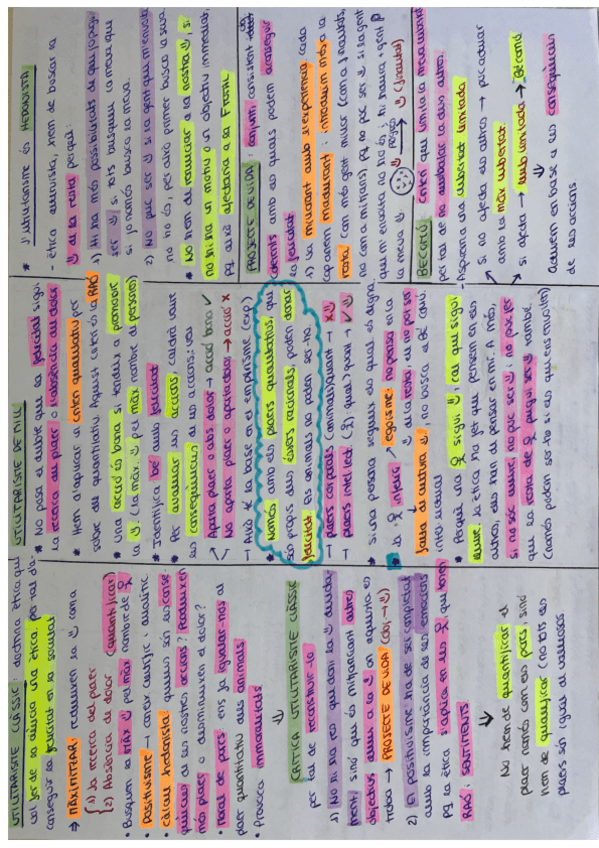 UTILITARISME CLÀSSIC: doctrina ètica que
vol fer de la ciència una ètica, per tal d'a-
conseguir la felicitat en la societat
⇒ MÀXIMITZAR: redueixen la ☺ com a
1) la recerca del plaer
2) Absència de dolor (quantificar)
• Busquem la MÀX ☺ pel màx nombre de
• Positivisme → coneix científic i analític
• càlcul hedonista: quines són les conse-
qüències de les nostres accions? Produeixen
més plaer o disminueixen el dolor?
• Moral de porcs: ens fa igualar-nos al
plaer quantitatiu dels animals
• Provoca immoralitats
CRÍTICA UTILITARISTE CLÀSSIC
per tal de reconstruir-lo
1) No hi ha res que doni la ☺ directa-
ment, sinó que és mitjançant altres
objectius aliens a la ☺ on aquesta es
troba → PROJECTE DE VIDA (obj → ☺)
2) El positivisme ha de ser completat
amb la importància de les emocions
pq la ètica s'aplica en les que tenen
RAÓ i SENTIMENTS
No hem de quantificar el
plaer només com els porcs, sinó
hem de qualificar (no tots els
plaers són igual de valuosos.
UTILITARISTE DE MILL
* No posa el dubte que la felicitat sigui
la recerca del plaer o l'absència del dolor
* Hem d'aplicar un criteri qualitatiu per
sobre del quantitatiu. Aquest criteri és la RAÓ
* Una acció és bona si tendeix a promoure
la ☺. (la màx. ☺ pel màx nombre de persones)
* Identifica "bé" amb felicitat
* Per avaluar les accions, caldrà veure
les conseqüències de les accions: vas
Aporta plaer o abs dolor → acció bona ✓
No aporta plaer o aporta dolor → acció x
→ Això té la base en el empirisme (exp)
* Només amb els plaers qualitatius, que
són propis dels éssers racionals, poden donar
felicitat. Els animals no poden ser-ho.
plaers corporals (animals) quant → x ☺
plaers intel·lect ( ) qual > quan → ✓ ☺
* Si una persona segueix els qual. es digna.
* la infeliç egoisme: no pensa en la
☺ de la resta ni no per so
falta de cultura ☺: no busca el Bé cult.
intel·lectual
* Perquè una sigui ☺, cal que sigui
lliure. la ètica ha fet que pensem en els
altres, ells han de pensar en mi. A més
si no sóc lliure, no puc ser ☺, i no puc fer
que la resta de pugui ser ☺ també.
(només podem ser-ho si els que ens envolten)
* l'utilitarisme és HEDONISTA
- ètica altruïsta, hem de buscar la
☺ de la resta perquè:
1) Hi ha més possibilitats de que jo pugui
ser ☺, si tots busquem la meva que
si jo només busco la meva.
2) No puc ser ☺ si la gent que m'envolta
no ho és, per això primer busco la seva
* No hem de renunciar a la nostra ☺, si
no hi ha un motiu o un objectiu immediat,
pq això afectaria a la FINAL
PROJECTE DE VIDA: conjunt consistent dob
coherents amb els quals podem aconseguir
la felicitat
* va millorant amb l'experiència cada
cop anem madurant i introduïm més a la
resta (com més gent millor (com a finalitats,
no com a mitjans) pq no puc ser ☺ si la gent
que m'envolta no ho és; hi haurà + gent p
la meva ☺. → ☺ (finalitat)
BÉ COMÚ: criteri que limita la meva llibertat
per tal de no envaïr la dels altres.
- Disposem d'una llibertat limitada
si no afecta els altres → puc actuar
amb la màx llibertat
si afecta → amb llib limitada → Bé comú
Actuem en base a les conseqüències
de les accions